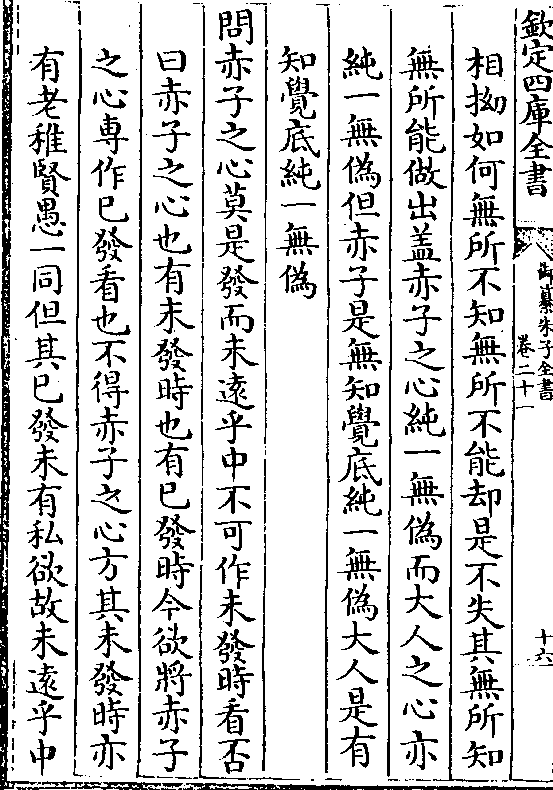 欽定四庫全書
御纂朱子全書
卷二十一
十六
相拗如何無所不知無所不能却是不失其無所知
無所能做出盖赤子之心純一無偽而大人之心亦
純一無偽但赤子是無知覺底純一無偽大人是有
知覺底純一無偽
問赤子之心莫是發而未逺乎中不可作未發時看否
曰赤子之心也有未發時也有已發時今欲將赤子
之心専作已發看也不得赤子之心方其未發時亦
有老稚賢愚一同但其已發未有私欲故未逺乎中